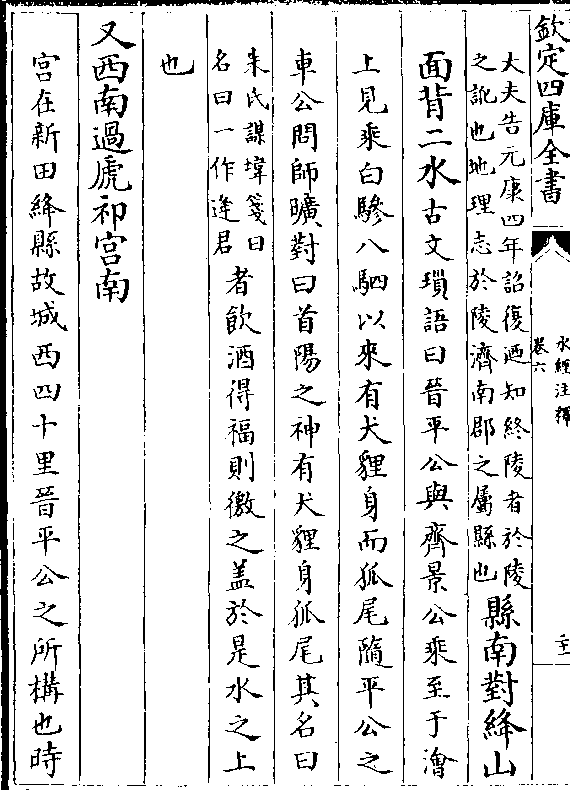 欽定四庫全書
水經注釋
卷六
二十一
大夫告元康四年詔復迺知終陵者於陵
之訛也地理志於陵濟南郡之屬縣也
縣南對絳山
面背二水古文瑣語曰晉平公與齊景公乘至于澮
上見乘白驂八駟以來有犬貍身而狐尾隨平公之
車公問師曠對曰首陽之神有犬貍身狐尾其名曰
朱氏謀㙔箋曰
名曰一作逢君
者飲酒得福則徼之蓋於是水之上
也
又西南過虒祁宮南
宮在新田絳縣故城西四十里晉平公之所構也時